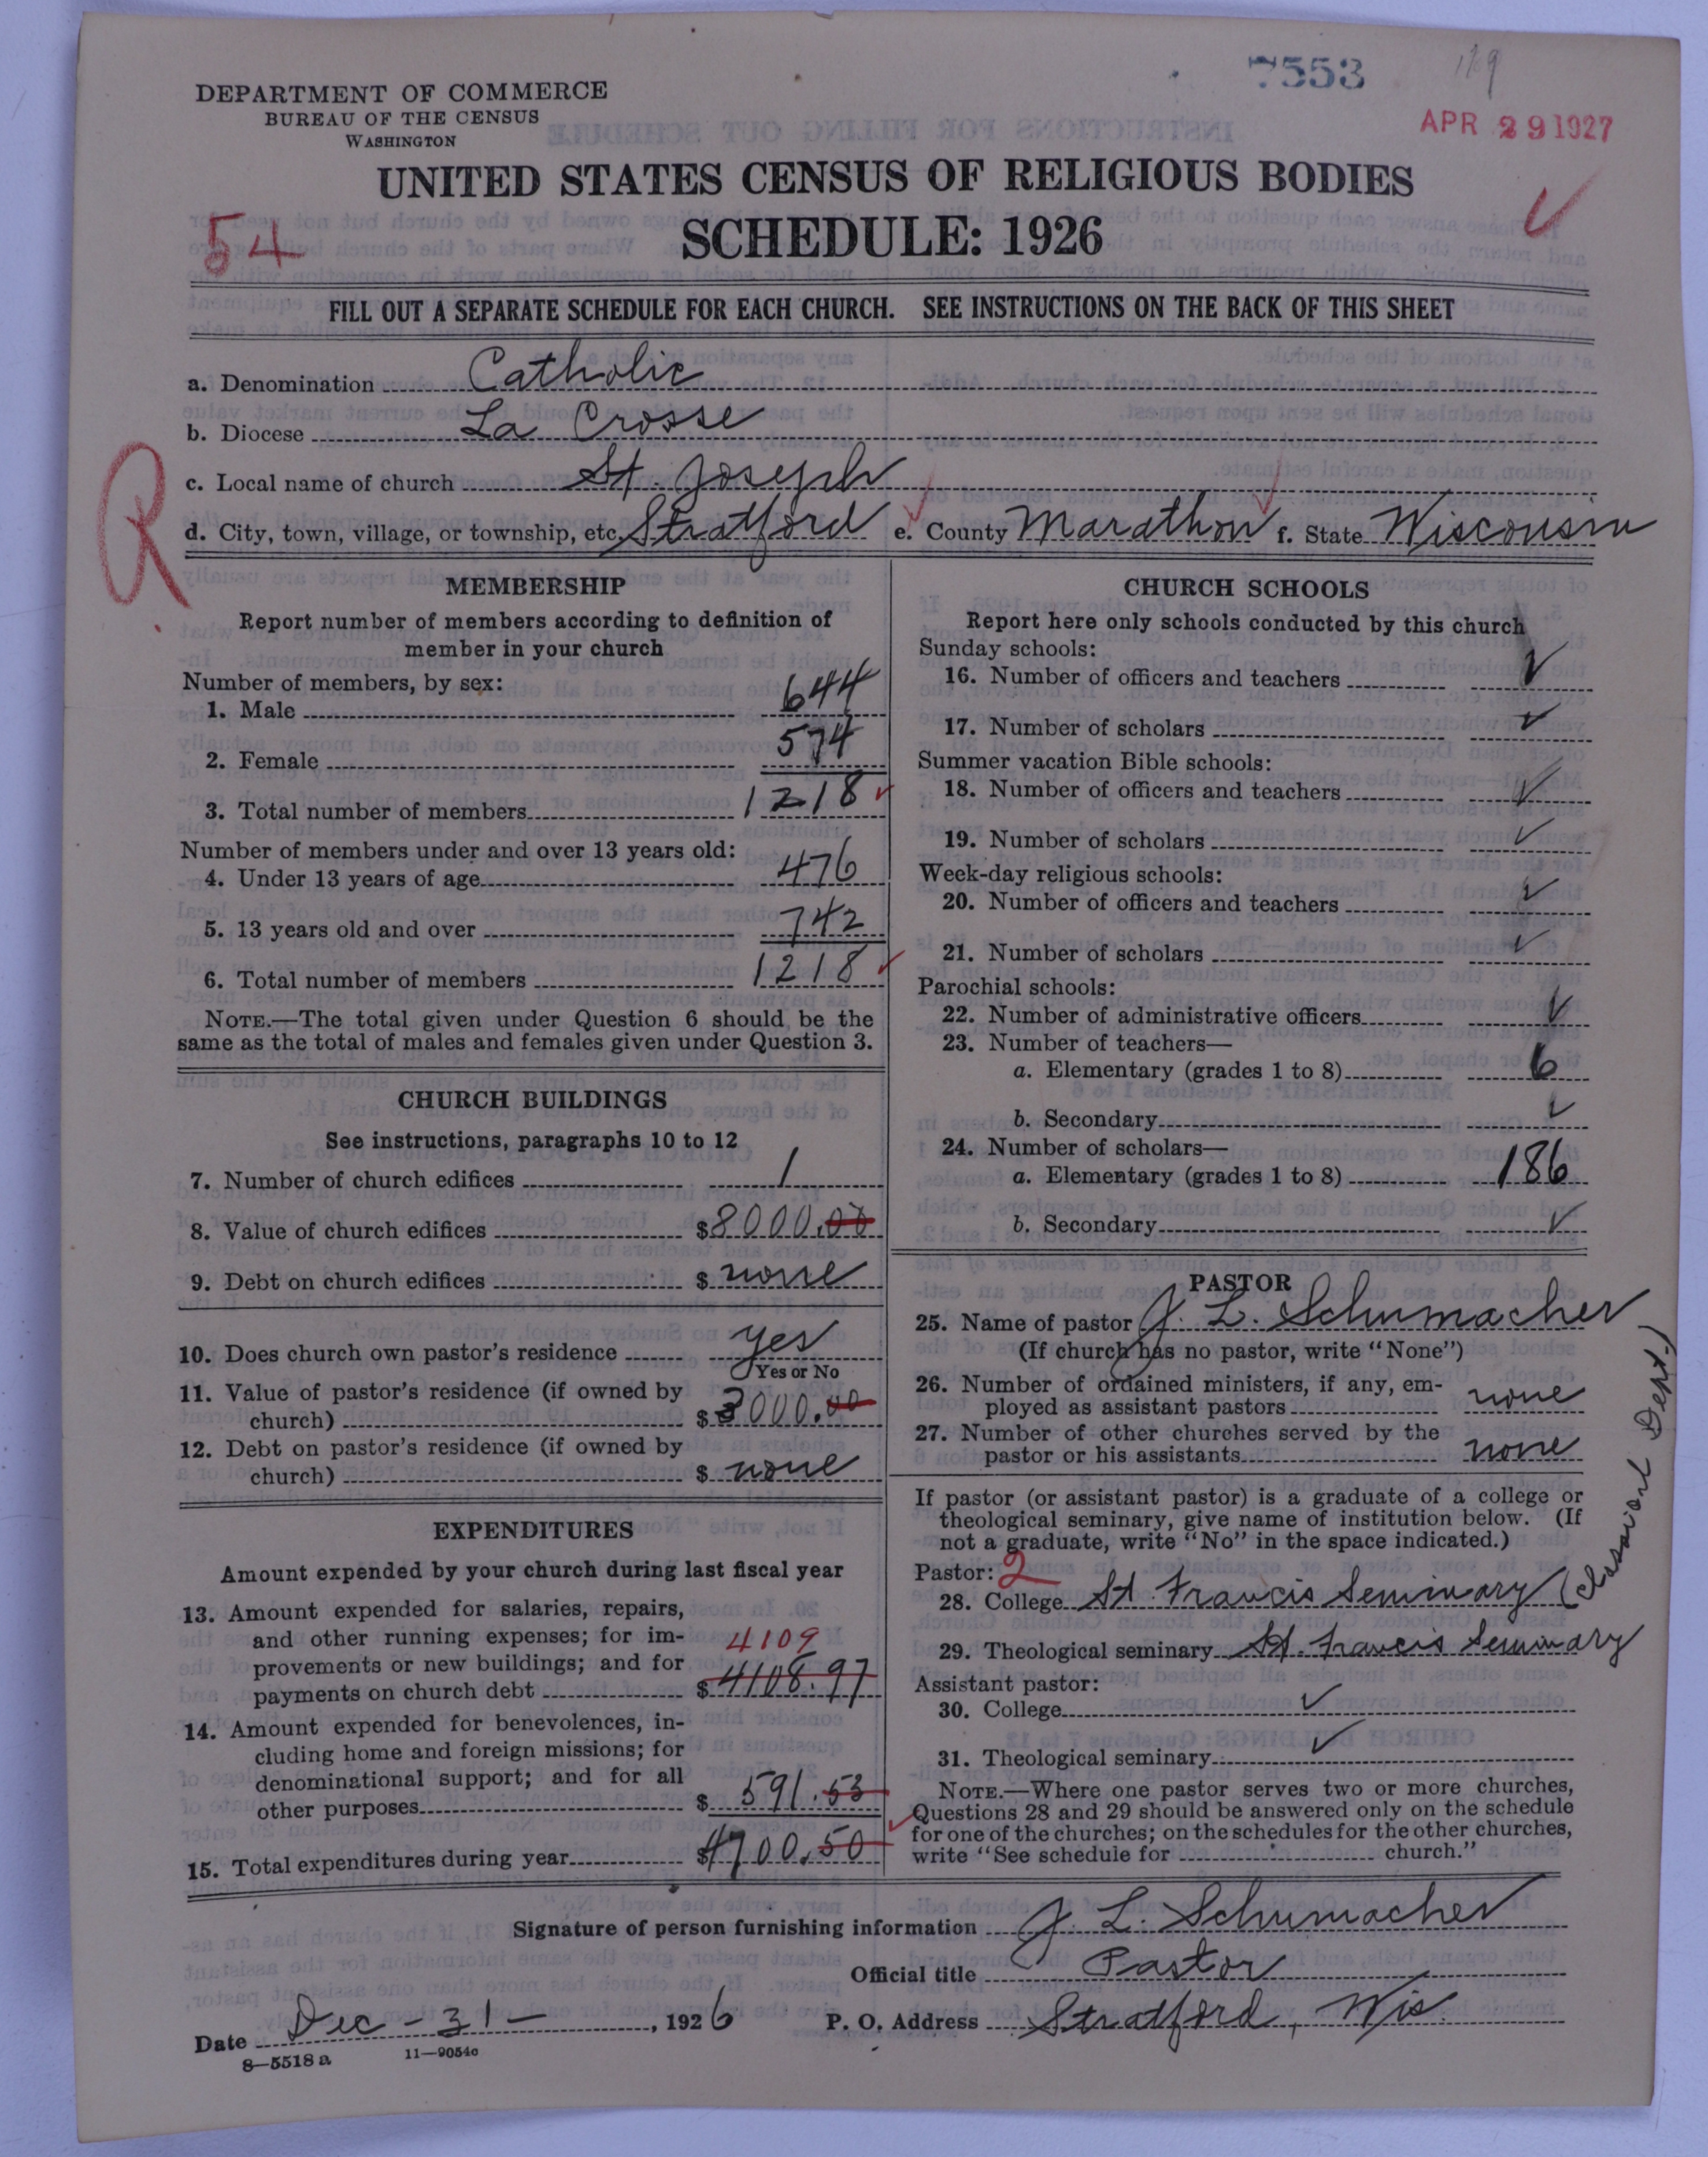 7553
DEPARTMENT OF COMMERCE
BUREAU OF THE CENSUS
WASHINGTON
APR 29 1927
UNITED STATES CENSUS OF RELIGIOUS BODIES
54
SCHEDULE: 1926
FILL OUT A SEPARATE SCHEDULE FOR EACH CHURCH. SEE INSTRUCTIONS ON THE BACK OF THIS SHEET
a. Denomination Catholic
b. Diocese La Crosse
R
c. Local name of church St. Joseph
d. City, town, village, or township, etc. Stratford e. County Marathon f. State Wisconsin
MEMBERSHIP
Report number of members according to definition of
member in your church
Number of members, by sex:
1. Male 644
2. Female 574
3. Total number of members 1218
Number of members under and over 13 years old:
4. Under 13 years of age 476
5. 13 years old and over 742
6. Total number of members 1218
NOTE.—The total given under Question 6 should be the
same as the total of males and females given under Question 3.
CHURCH BUILDINGS
See instructions, paragraphs 10 to 12
7. Number of church edifices 1
8. Value of church edifices $8000.00
9. Debt on church edifices $ none
10. Does church own pastor's residence yes
Yes or No
11. Value of pastor's residence (if owned by
church) $3000.00
12. Debt on pastor's residence (if owned by
church) $ none
EXPENDITURES
Amount expended by your church during last fiscal year
13. Amount expended for salaries, repairs,
and other running expenses; for im- 4109
provements or new buildings; and for
payments on church debt $4108.97
14. Amount expended for benevolences, in-
cluding home and foreign missions; for
denominational support; and for all
other purposes $ 591.53
15. Total expenditures during year $4700.50
CHURCH SCHOOLS
Report here only schools conducted by this church
Sunday schools:
16. Number of officers and teachers ✓
17. Number of scholars ✓
Summer vacation Bible schools:
18. Number of officers and teachers ✓
19. Number of scholars ✓
Week-day religious schools:
20. Number of officers and teachers ✓
21. Number of scholars ✓
Parochial schools:
22. Number of administrative officers ✓
23. Number of teachers—
a. Elementary (grades 1 to 8) 6
b. Secondary ✓
24. Number of scholars—
a. Elementary (grades 1 to 8) 186
b. Secondary ✓
PASTOR
25. Name of pastor J. L. Schumacher
(If church has no pastor, write "None")
26. Number of ordained ministers, if any, em-
ployed as assistant pastors none
27. Number of other churches served by the
pastor or his assistants none
If pastor (or assistant pastor) is a graduate of a college or
theological seminary, give name of institution below. (If
not a graduate, write "No" in the space indicated.)
Pastor: 2
28. College St. Francis Seminary (classical Dept.)
29. Theological seminary St. Francis Seminary
Assistant pastor:
30. College ✓
31. Theological seminary ✓
NOTE.—Where one pastor serves two or more churches,
Questions 28 and 29 should be answered only on the schedule
for one of the churches; on the schedules for the other churches,
write "See schedule for church."
Signature of person furnishing information J. L. Schumacher
Official title Pastor
Date Dec - 31 -, 1926 P. O. Address Stratford, Wis.
8—5518 a 11—9054c